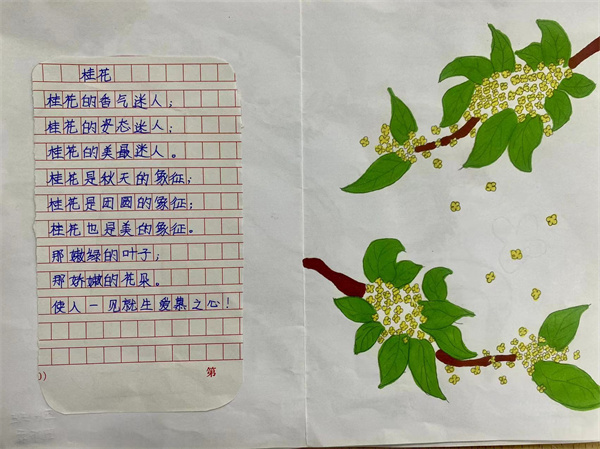 桂花
桂花的香气迷人；
桂花的姿态迷人；
桂花的美最迷人。
桂花是秋天的象征；
桂花是团圆的象征；
桂花也是美的象征。
那嫩绿的叶子；
那娇嫩的花朵。
使人一见就生爱慕之心！
第